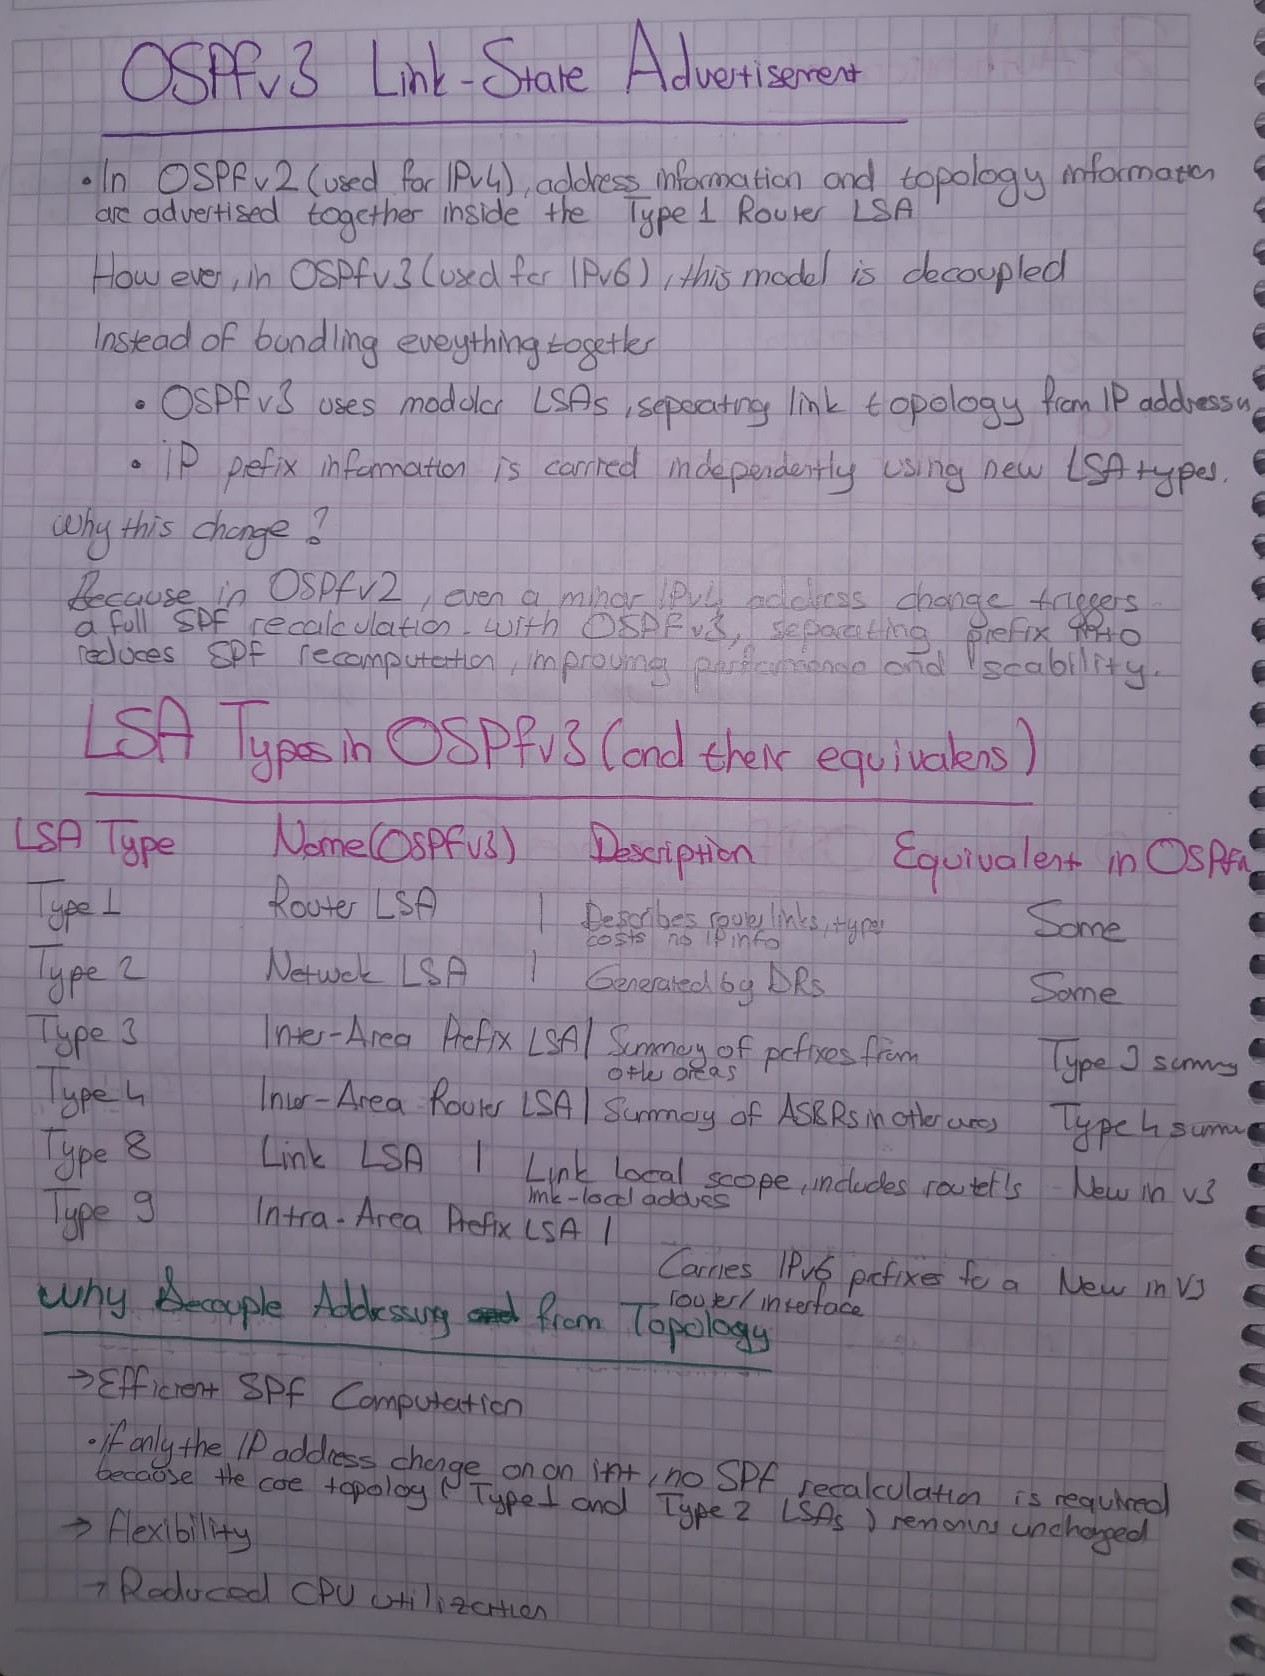 OSPFv3 Link-State Advertisement
• In OSPFv2 (used for IPv4), address information and topology information
are advertised together inside the Type 1 Router LSA
However, in OSPFv3 (used for IPv6), this model is decoupled
Instead of bundling eveything together
• OSPFv3 uses modular LSAs, seperating link topology from IP addressing
• IP prefix information is carried independently using new LSA types.
Why this change?
Because in OSPFv2, even a minor IPv4 address change triggers
a full SPF recalculation. with OSPFv3, separating prefix
reduces SPF recomputation, improving performance and scability.
LSA Types in OSPFv3 (and their equivalens)
LSA Type Name(OSPFv3) Description Equivalent in
Type 1 Router LSA | Describes router links, types Same
costs no IP info
Type 2 Netwok LSA | Generated by DRs Same
Type 3 Inter-Area Prefix LSA | Summary of prefixes from Type 3 summy
other areas
Type 4 Inter-Area Router LSA | Summary of ASBRs in other areas Type 4
Type 8 Link LSA | Link local scope, includes router's New in v3
link-local address
Type 9 Intra-Area Prefix LSA |
Carries IPv6 prefixes fo a New in V3
router/interface
Why Decouple Addressing from Topology
→ Efficient SPF Computation
• if only the IP address change on an int, no SPF recalculation is required
because the coe topology (Type 1 and Type 2 LSAs) remains unchanged
→ Flexibility
→ Reduced CPU utilization